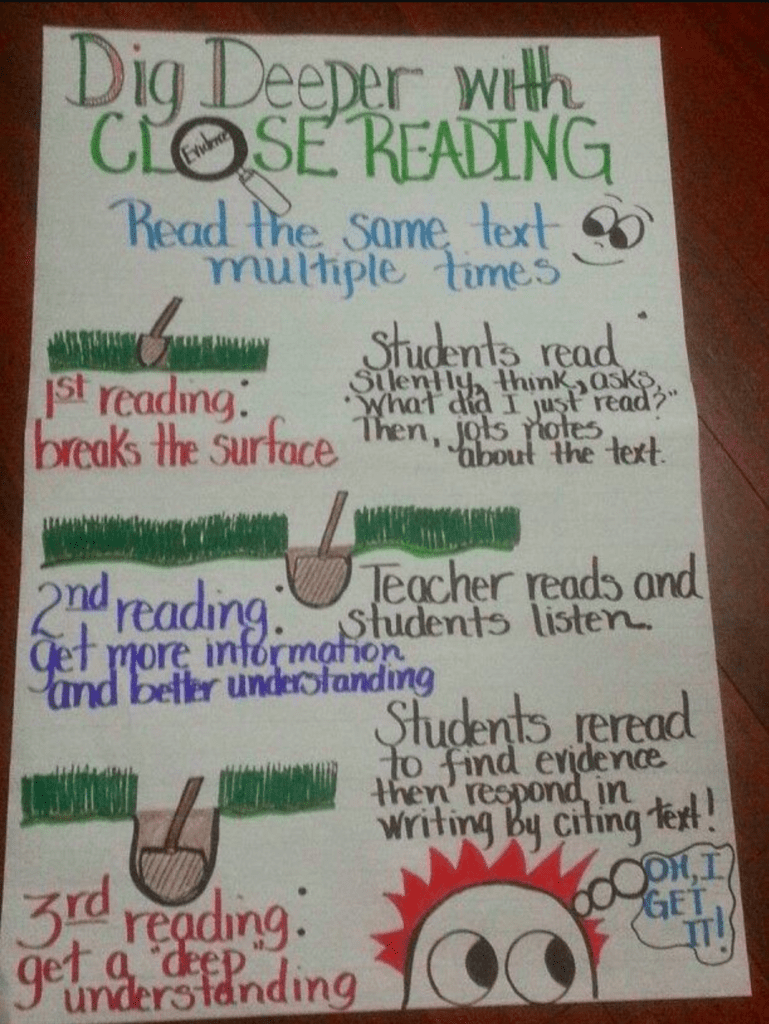 Dig Deeper with
CLOSE READING
Evidence
Read the same text
multiple times
1st reading:
breaks the surface
Students read
silently, think, asks,
"What did I just read?"
Then, jots notes
about the text.
2nd reading:
get more information
and better understanding
Teacher reads and
students listen.
3rd reading:
get a "deep"
understanding
Students reread
to find evidence
then respond in
writing by citing text!
OH, I
GET
IT!